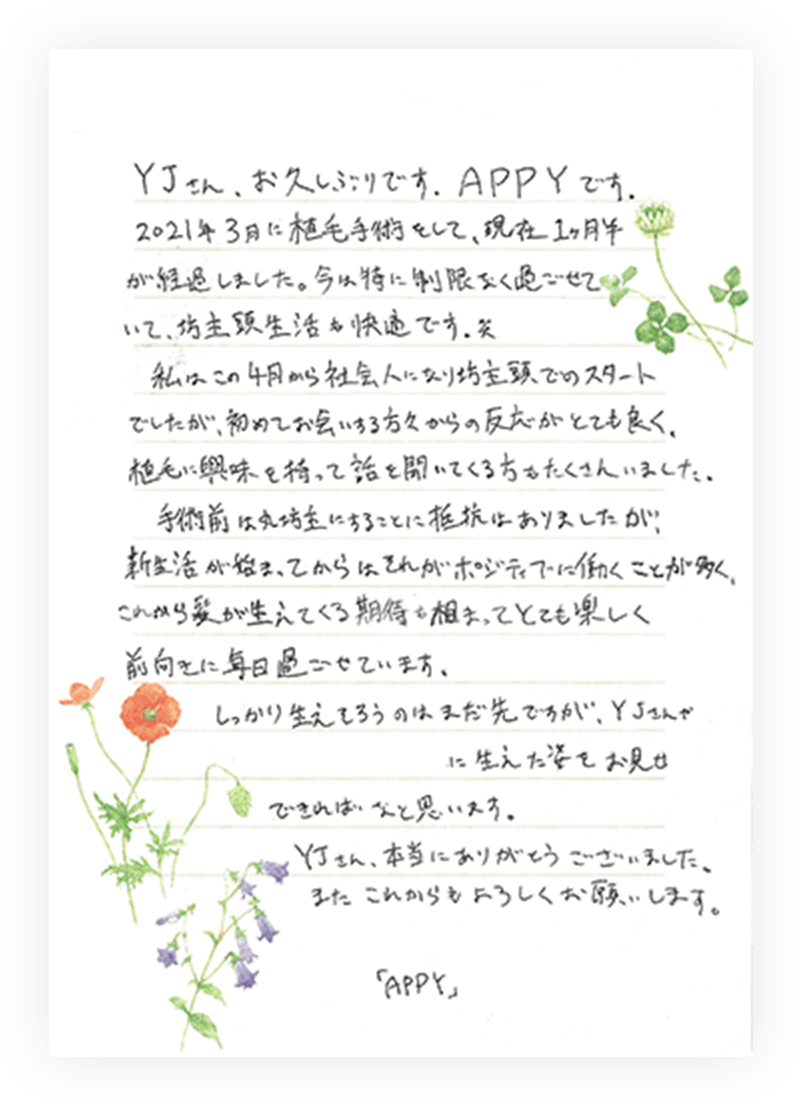 YJさん、お久しぶりです. APPYです.
2021年3月に植毛手術をして、現在1ヶ月半
が経過しました。今は特に制限なく過ごせて
いて、坊主頭生活も快適です.笑
私はこの4月から社会人になり坊主頭でのスタート
でしたが、初めてお会いする方々からの反応がとても良く、
植毛に興味を持って話を聞いてくる方もたくさんいました.
手術前は丸坊主にすることに抵抗はありましたが、
新生活が始まってからはそれがポジティブに働くことが多く、
これから髪が生えてくる期待も相まってとても楽しく
前向きに毎日過ごせています.
しっかり生えそろうのはまだ先ですが、YJさんや
に生えた姿をお見せ
できればなと思います。
YJさん、本当にありがとうございました.
またこれからもよろしくお願いします。
「APPY」